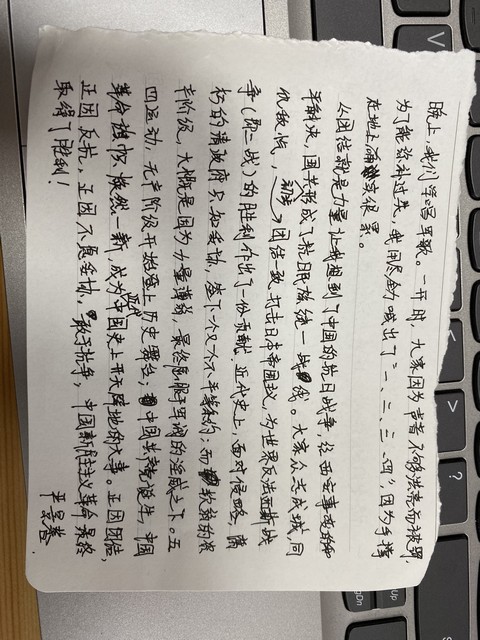 晚上,我们学唱军歌。一开时,大家因为声音不够洪亮而被罚,
为了能弥补过失,我用尽全力喊出了“一、二、三、四”,因为手撑
在地上而疲累。
团结就是力量让我想到了中国的抗日战争,经西安事变的和
平解决,国共形成了抗日民族统一战线。大家众志成城,同
仇敌忾,初步团结一致抗击日本帝国主义,为世界反法西斯战
争(即二战)的胜利作出了一份贡献。近代史上,面对侵略,腐
朽的清政府只知妥协,签了一个又一个不平等条约;而软弱的资
产阶级,大概是因为力量薄弱,最终屈服于军阀的淫威之下。五
四运动,无产阶级开始登上历史舞台;中国共产党诞生,中国
革命面貌焕然一新,成为中国史上开天辟地的大事。正因团结,
正因反抗,正因不愿妥协,敢于抗争,中国新民主主义革命最终
取得了胜利!
V
<
>
?
PgDn
Up